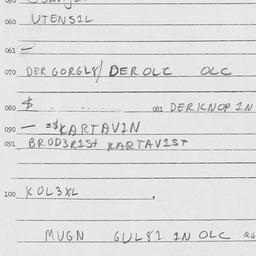 060 UTENS1L
061 —
070 DERGORGL8/ DEROLC OLC
080 $ 081 DERKNOP 1N
090 — =$KARTAV1N
091 BROD3R1St KARTAV1St
100 KOL3XL .
MUGN GUL81 1N OLC